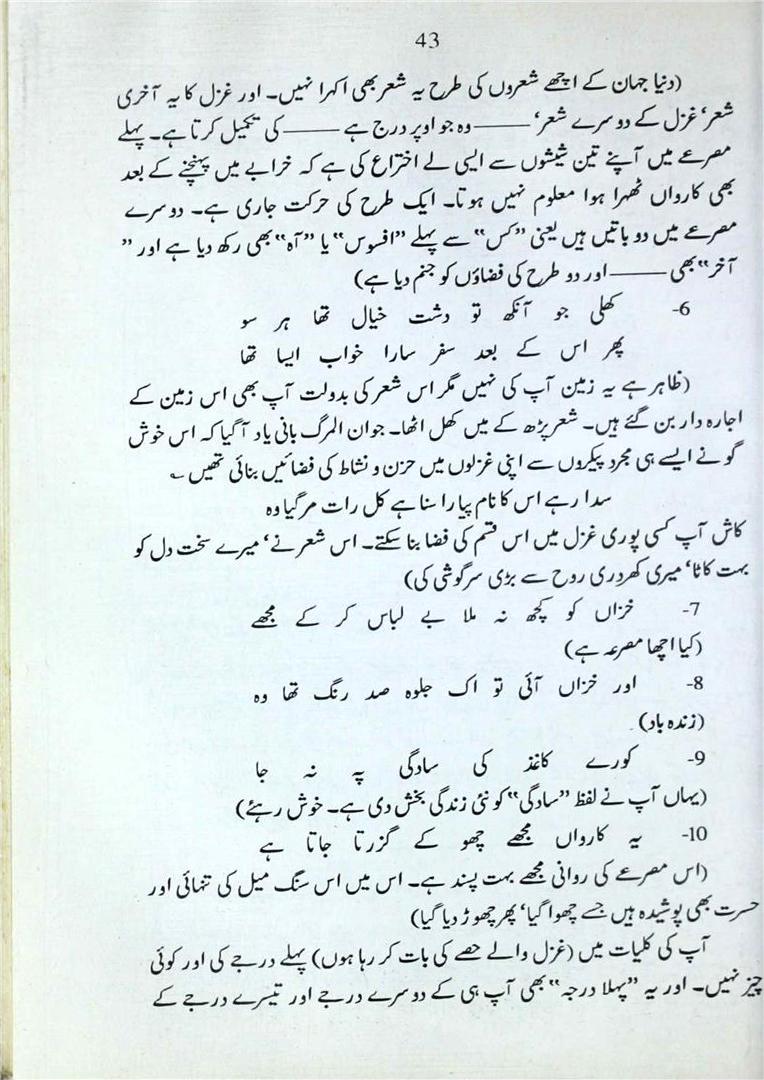 43
(دنیا جہان کے اچھے شعروں کی طرح یہ شعر بھی اکہرا نہیں۔ اور غزل کا یہ آخری
شعر‘ غزل کے دوسرے شعر‘ ——— وہ جو اوپر درج ہے ——— کی تکمیل کرتا ہے۔ پہلے
مصرعے میں آپنے تین شیشوں سے ایسی لے اختراع کی ہے کہ خرابے میں پہنچنے کے بعد
بھی کارواں ٹھہرا ہوا معلوم نہیں ہوتا۔ ایک طرح کی حرکت جاری ہے۔ دوسرے
مصرعے میں دو باتیں ہیں یعنی ”کس“ سے پہلے ”افسوس“ یا ”آہ“ بھی رکھ دیا ہے اور ”
آخر“ بھی ——— اور دو طرح کی فضاؤں کو جنم دیا ہے)
6- کھلی جو آنکھ تو دشت خیال تھا ہر سو
پھر اس کے بعد سفر سارا خواب ایسا تھا
(ظاہر ہے یہ زمین آپ کی نہیں مگر اس شعر کی بدولت آپ بھی اس زمین کے
اجارہ دار بن گئے ہیں۔ شعر پڑھ کے میں کھل اٹھا۔ جوان المرگ بانی یاد آ گیا کہ اس خوش
گو نے ایسے ہی مجرد پیکروں سے اپنی غزلوں میں حزن و نشاط کی فضائیں بنائی تھیں ؎
سدا رہے اس کا نام پیارا سنا ہے کل رات مر گیا وہ
کاش آپ کسی پوری غزل میں اس قسم کی فضا بنا سکتے۔ اس شعر نے‘ میرے سخت دل کو
بہت کاٹا‘ میری کھردری روح سے بڑی سرگوشی کی)
7- خزاں کو کچھ نہ ملا بے لباس کر کے مجھے
(کیا اچھا مصرعہ ہے)
8- اور خزاں آئی تو اک جلوہ صد رنگ تھا وہ
(زندہ باد)
9- کورے کاغذ کی سادگی پہ نہ جا
(یہاں آپ نے لفظ ”سادگی“ کو نئی زندگی بخش دی ہے۔ خوش رہئے)
10- یہ کارواں مجھے چھو کے گزرتا جاتا ہے
(اس مصرعے کی روانی مجھے بہت پسند ہے۔ اس میں اس سنگ میل کی تنہائی اور
حسرت بھی پوشیدہ ہیں جسے چھوا گیا‘ پھر چھوڑ دیا گیا)
آپ کی کلیات میں (غزل والے حصے کی بات کر رہا ہوں) پہلے درجے کی اور کوئی
چیز نہیں۔ اور یہ ”پہلا درجہ“ بھی آپ ہی کے دوسرے درجے اور تیسرے درجے کے